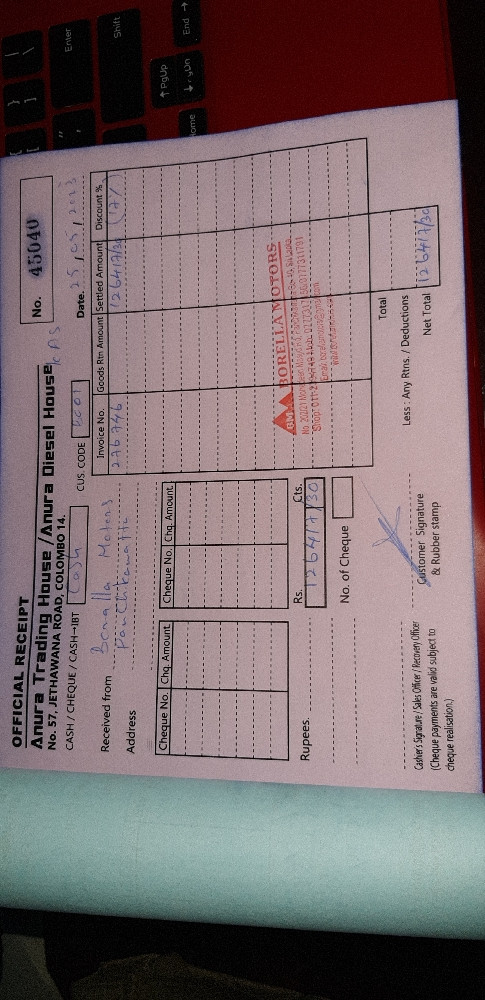 OFFICIAL RECEIPT
Anura Trading House / Anura Diesel House
No. 57, JETHAWANA ROAD, COLOMBO 14.
No. 45040
CASH / CHEQUE / CASH-IBT Cash
CUS. CODE
Date. 25/05/2023
Received from Borella Motors
Address Panchikawatta
Invoice No. Goods Rtn Amount Settled Amount Discount %
276746 126417/30 (17/)
Cheque No. Chq. Amount Cheque No. Chq. Amount
BM BORELLA MOTORS
Rupees
Rs. Cts.
126417/30
No. of Cheque
Total
Less : Any Rtns. / Deductions
Net Total 126417/30
Cashier's Signature / Sales Officer / Recovery Officer
(Cheque payments are valid subject to
cheque realisation.)
Customer Signature
& Rubber stamp
Enter
Shift
PgUp
PgDn
End
Home